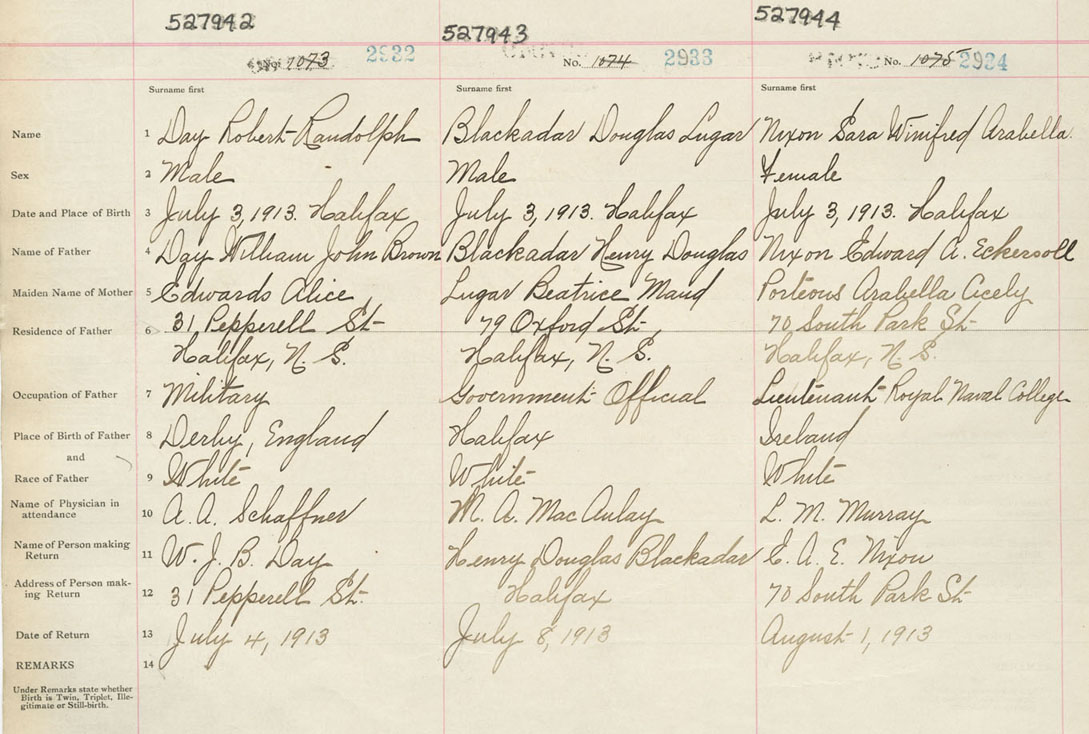 527942 527943 527944
No. 1073 2932 No. 1074 2933 No. 1075 2934
Surname first Surname first Surname first
Name 1 Day Robert Randolph Blackadar Douglas Lugar Nixon Sara Winifred Arabella.
Sex 2 Male Male Female
Date and Place of Birth 3 July 3, 1913. Halifax July 3, 1913. Halifax July 3, 1913. Halifax
Name of Father 4 Day William John Brown Blackadar Henry Douglas Nixon Edward A. Eckersoll
Maiden Name of Mother 5 Edwards Alice Lugar Beatrice Maud Porteous Arabella Cicely
Residence of Father 6 31 Pepperell St. 79 Oxford St., 70 South Park St.
Halifax, N. S. Halifax, N. S. Halifax, N. S.
Occupation of Father 7 Military Government Official Lieutenant Royal Naval College
Place of Birth of Father 8 Derby, England Halifax Ireland
and
Race of Father 9 White White White
Name of Physician in
attendance 10 A. A. Schaffner M. A. MacAulay L. M. Murray
Name of Person making
Return 11 W. J. B. Day Henry Douglas Blackadar E. A. E. Nixon
Address of Person mak-
ing Return 12 31 Pepperell St. Halifax 70 South Park St.
Date of Return 13 July 4, 1913 July 8, 1913 August 1, 1913
REMARKS 14
Under Remarks state whether
Birth is Twin, Triplet, Ille-
gitimate or Still-birth.